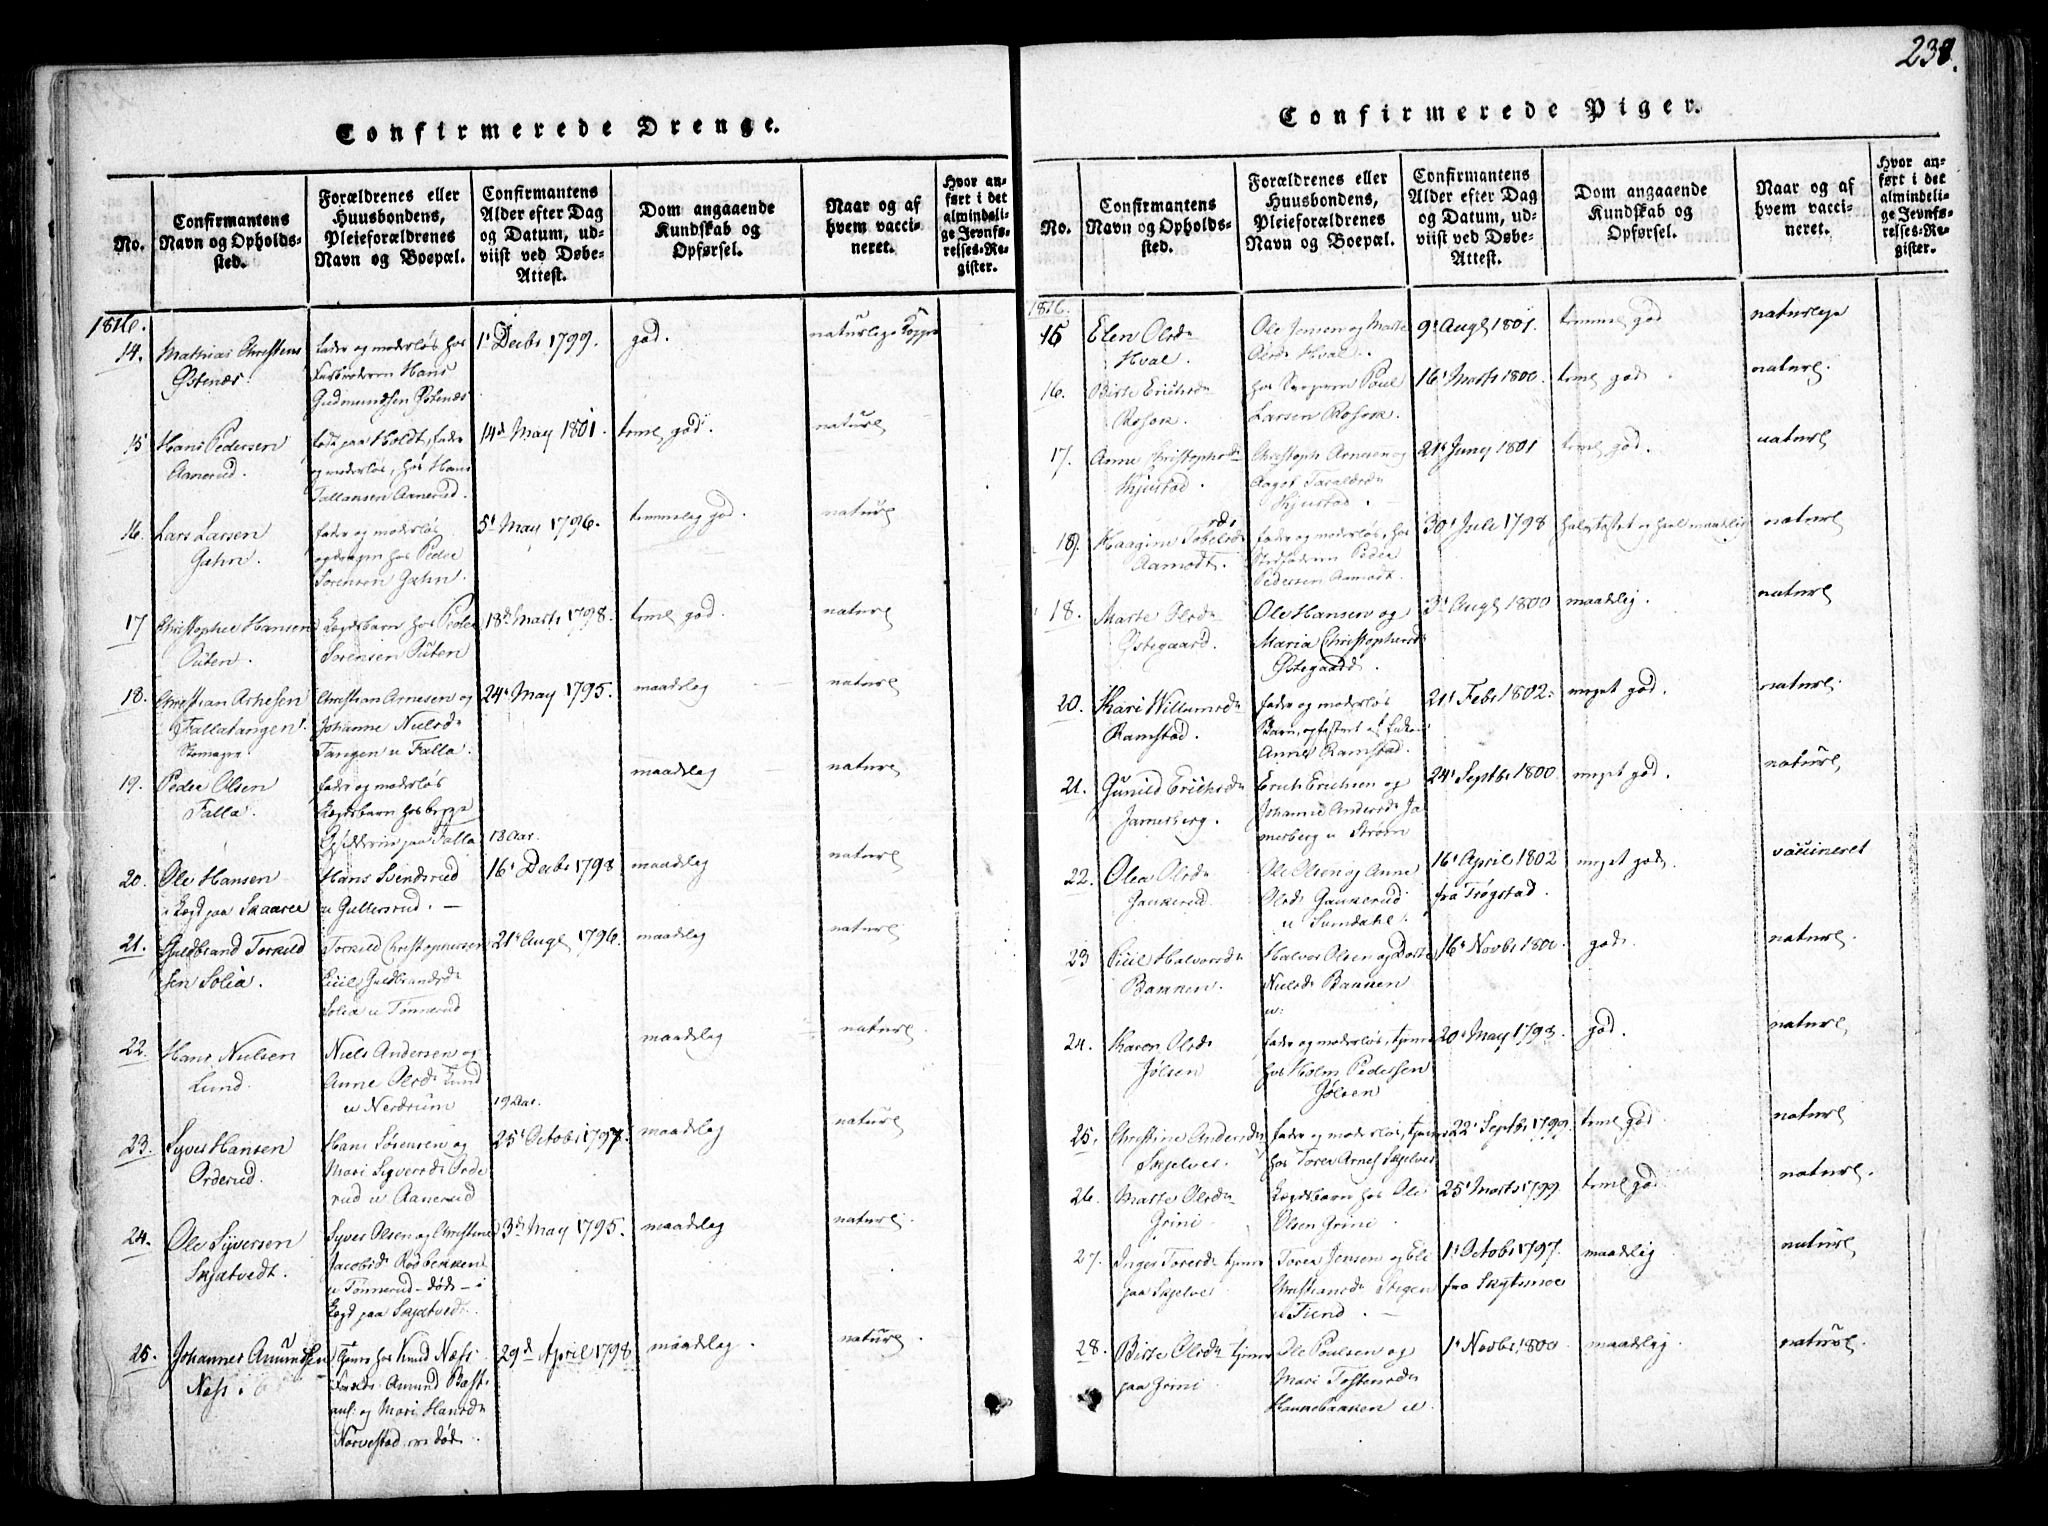 238.
Confirmerede Drenge.
No.
Confirmantens
Navn og Opholds-
sted.
Forældrenes eller
Huusbondens,
Pleieforældrenes
Navn og Boepæl.
Confirmantens
Alder efter Dag
og Datum, ud-
viist ved Døbe-
Attest.
Dom angaaende
Kundskab og
Opførsel.
Naar og af
hvem vacci-
neret.
Hvor an-
ført i det
almindeli-
ge Jevnfø-
relses-Re-
gister.
1816.
14.
Mathias Christens
Østenæs.
fader og moderløs hos
Farbroderen Hans
Gudmundsen Østenæs
1t Decbr 1799.
god.
naturlige Kopper
15
Hans Pedersen
Aanerud.
fader
og moderløs, hos Hans
Tallaksen Aanerud.
14d May 1801.
tmel god.
nature
16.
Lars Larsen
Gahn.
fader og moderløs
opdragen hos Peder
Sørensen Gahn.
5t May 1796.
temmelig god.
nature
17
Christopher Hansen
Puten.
Lægdsbarn hos Peder
Sørensen Puten
18d Marts 1798.
tmel god
nature
18.
Christian Arnesen
Fallatangen.
Christian Arnesen og
Johanne Nielsdr
Tangen u Falla.
24t May 1795.
maadelig
nature
19.
Peder Olsen
Falla.
fader og moderløs
Lægdsbarn hos begge
Opsidderne paa Falla
18 Aar.
maadelig
nature
20.
Ole Hansen
i Lægd paa Skaaree
Hans Svendsrud
u Gullersrud. —
16t Decbr 1798
maadelig
nature
21.
Guldbrand Torkild
sen Solia.
Torkild Christophersen
Eliil Guldbrandsdr
Solia u Tønnerud
21t Augt 1796.
maadelig
nature
22.
Hans Nielsen
Lund.
Niels Andersen og
Anne Olsdr Lund
u Nerdrum
19 Aar.
maadelig
nature
23.
Syver Hansen
Orderud.
Hans Sørensen og
Mari Syversdr Orde
rud u Aanerud
25t Octobr 1797.
maadelig
nature
24.
Ole Syversen
Skjatvedt.
Syver Olsen og Christine
Jacobsdr Rødbekken
u Tønnerud – døde – i
Lægd paa Skjatvedt
3d May 1795.
maadelig
nature
25.
Johannes Amundsen
Næss.
tjener hos Knud Næss.
Foreldr Amund Bast-
ans: og Mari Hansdr
Norvestad døde
29d April 1798
maadelig.
nature
Confirmerede Piger.
No.
Confirmantens
Navn og Opholds-
sted.
Forældrenes eller
Huusbondens,
Pleieforældrenes
Navn og Boepæl.
Confirmantens
Alder efter Dag
og Datum, ud-
viist ved Døbe-
Attest.
Dom angaaende
Kundskab og
Opførsel.
Naar og af
hvem vacci-
neret.
Hvor an-
ført i det
almindeli-
ge Jevnfø-
relses-Re-
gister.
1816.
15
Elen Olsdr
Hval.
Ole Jensen og Marte
Olsdr Hval.
9t Augt 1801.
temmel god
naturlige
16.
Birte Erichsdr
Rosok.
Poul
Larsen Rosok.
16t Marts 1800.
tmel god
nature.
17.
Anne Christophsdr
Kjustad.
Christoph Arnesen og
Kjustad.
21t Juny 1801
tmel god.
nature
19.
Aamodt.
fader og moderløs, hos
Stedfaderen Peder
Pedersen Aamodt.
30t Juli 1798
nature
18.
Marte Olsdr
Østegaard.
Ole Hansen og
Maria Christophersdr
Østegaard.
3t Augt 1800
maadelig.
nature
20.
Kari Willumsdr
Ramstad.
fader og moderløs
Barn, opfostret af Enken
Anne Ramstad.
21t Febr 1802.
meget god.
nature
21.
Gunild Erichsdr
Jamesberg.
Erich Erichsen og
Johanne Andersdr Ja
mesberg u Strøm
24t Septbr 1800
meget god.
nature
22.
Olea Olsdr
Gaukerud.
Ole Olsen og Anne
Olsdr Gaukerud
u Sundahl.
16t April 1802
fra Trøgstad.
meget god
vaccineret
23
Siiil Halvorsdr
Bakken.
Halvor Olsen og Dorte
Nielsdr Bakken
u:
16t Novbr 1800.
god.
nature.
24.
Karen Olsdr
Jølsen
fader og moderløs, tjener
hos Holm Pedersen
Jølsen
20t May 1793.
god.
nature
25.
Christine Andersdr
Skjelver.
fader og moderløs, tjener
hos Tores Arnes Skjelver
22t Septbr 1799.
tmel god
nature
26.
Marte Olsdr
Grini
Lægdsbarn hos Ole
Olsen Grini
25t Marts 1799
tmel god
nature.
27.
Inger Toresdr tjener
paa Skjelver
Tores Jensen og Eli
Christiansdr Stegen
u Tiend. —
1t Octobr 1797.
fra Skytsmoe
maadelig
nature
28.
Birte Olsdr tjener
paa Grini
Ole Poulsen og
Mari Tostensdr
Hannebakken u.
1t Novbr 1800
maadelig.
nature